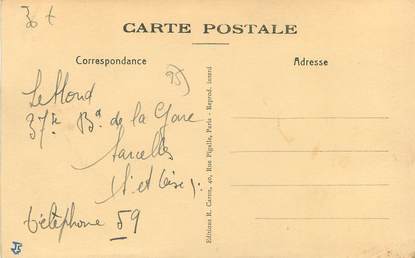 30 t
CARTE POSTALE
Correspondance
Adresse
95)
37 Bd de la Gare
Sarcelles
(S. et Oise).
téléphone 59
Editions R. Caron, 40, Rue Pigalle, Paris - Reprod. interd